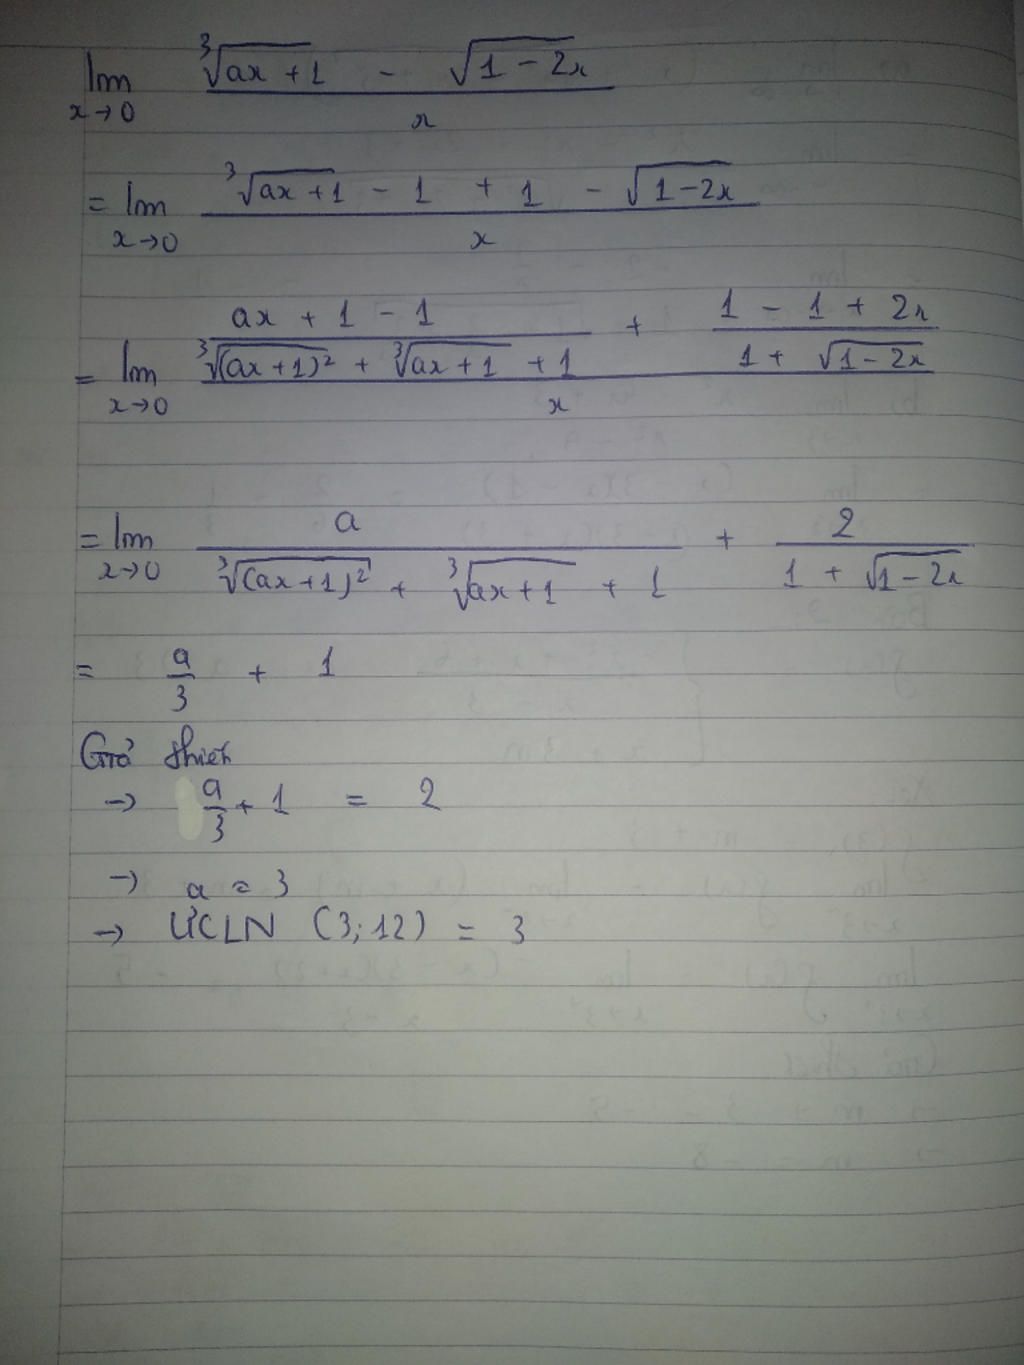 lim x→0 (∛(ax+1) - √(1-2x)) / x
= lim x→0 (∛(ax+1) - 1 + 1 - √(1-2x)) / x
= lim x→0 ((ax + 1 - 1) / (∛((ax+1)²) + ∛(ax+1) + 1) + (1 - 1 + 2x) / (1 + √(1-2x))) / x
= lim x→0 a / (∛((ax+1)²) + ∛(ax+1) + 1) + 2 / (1 + √(1-2x))
= a/3 + 1
Giả thiết
→ a/3 + 1 = 2
→ a = 3
→ ƯCLN (3; 12) = 3